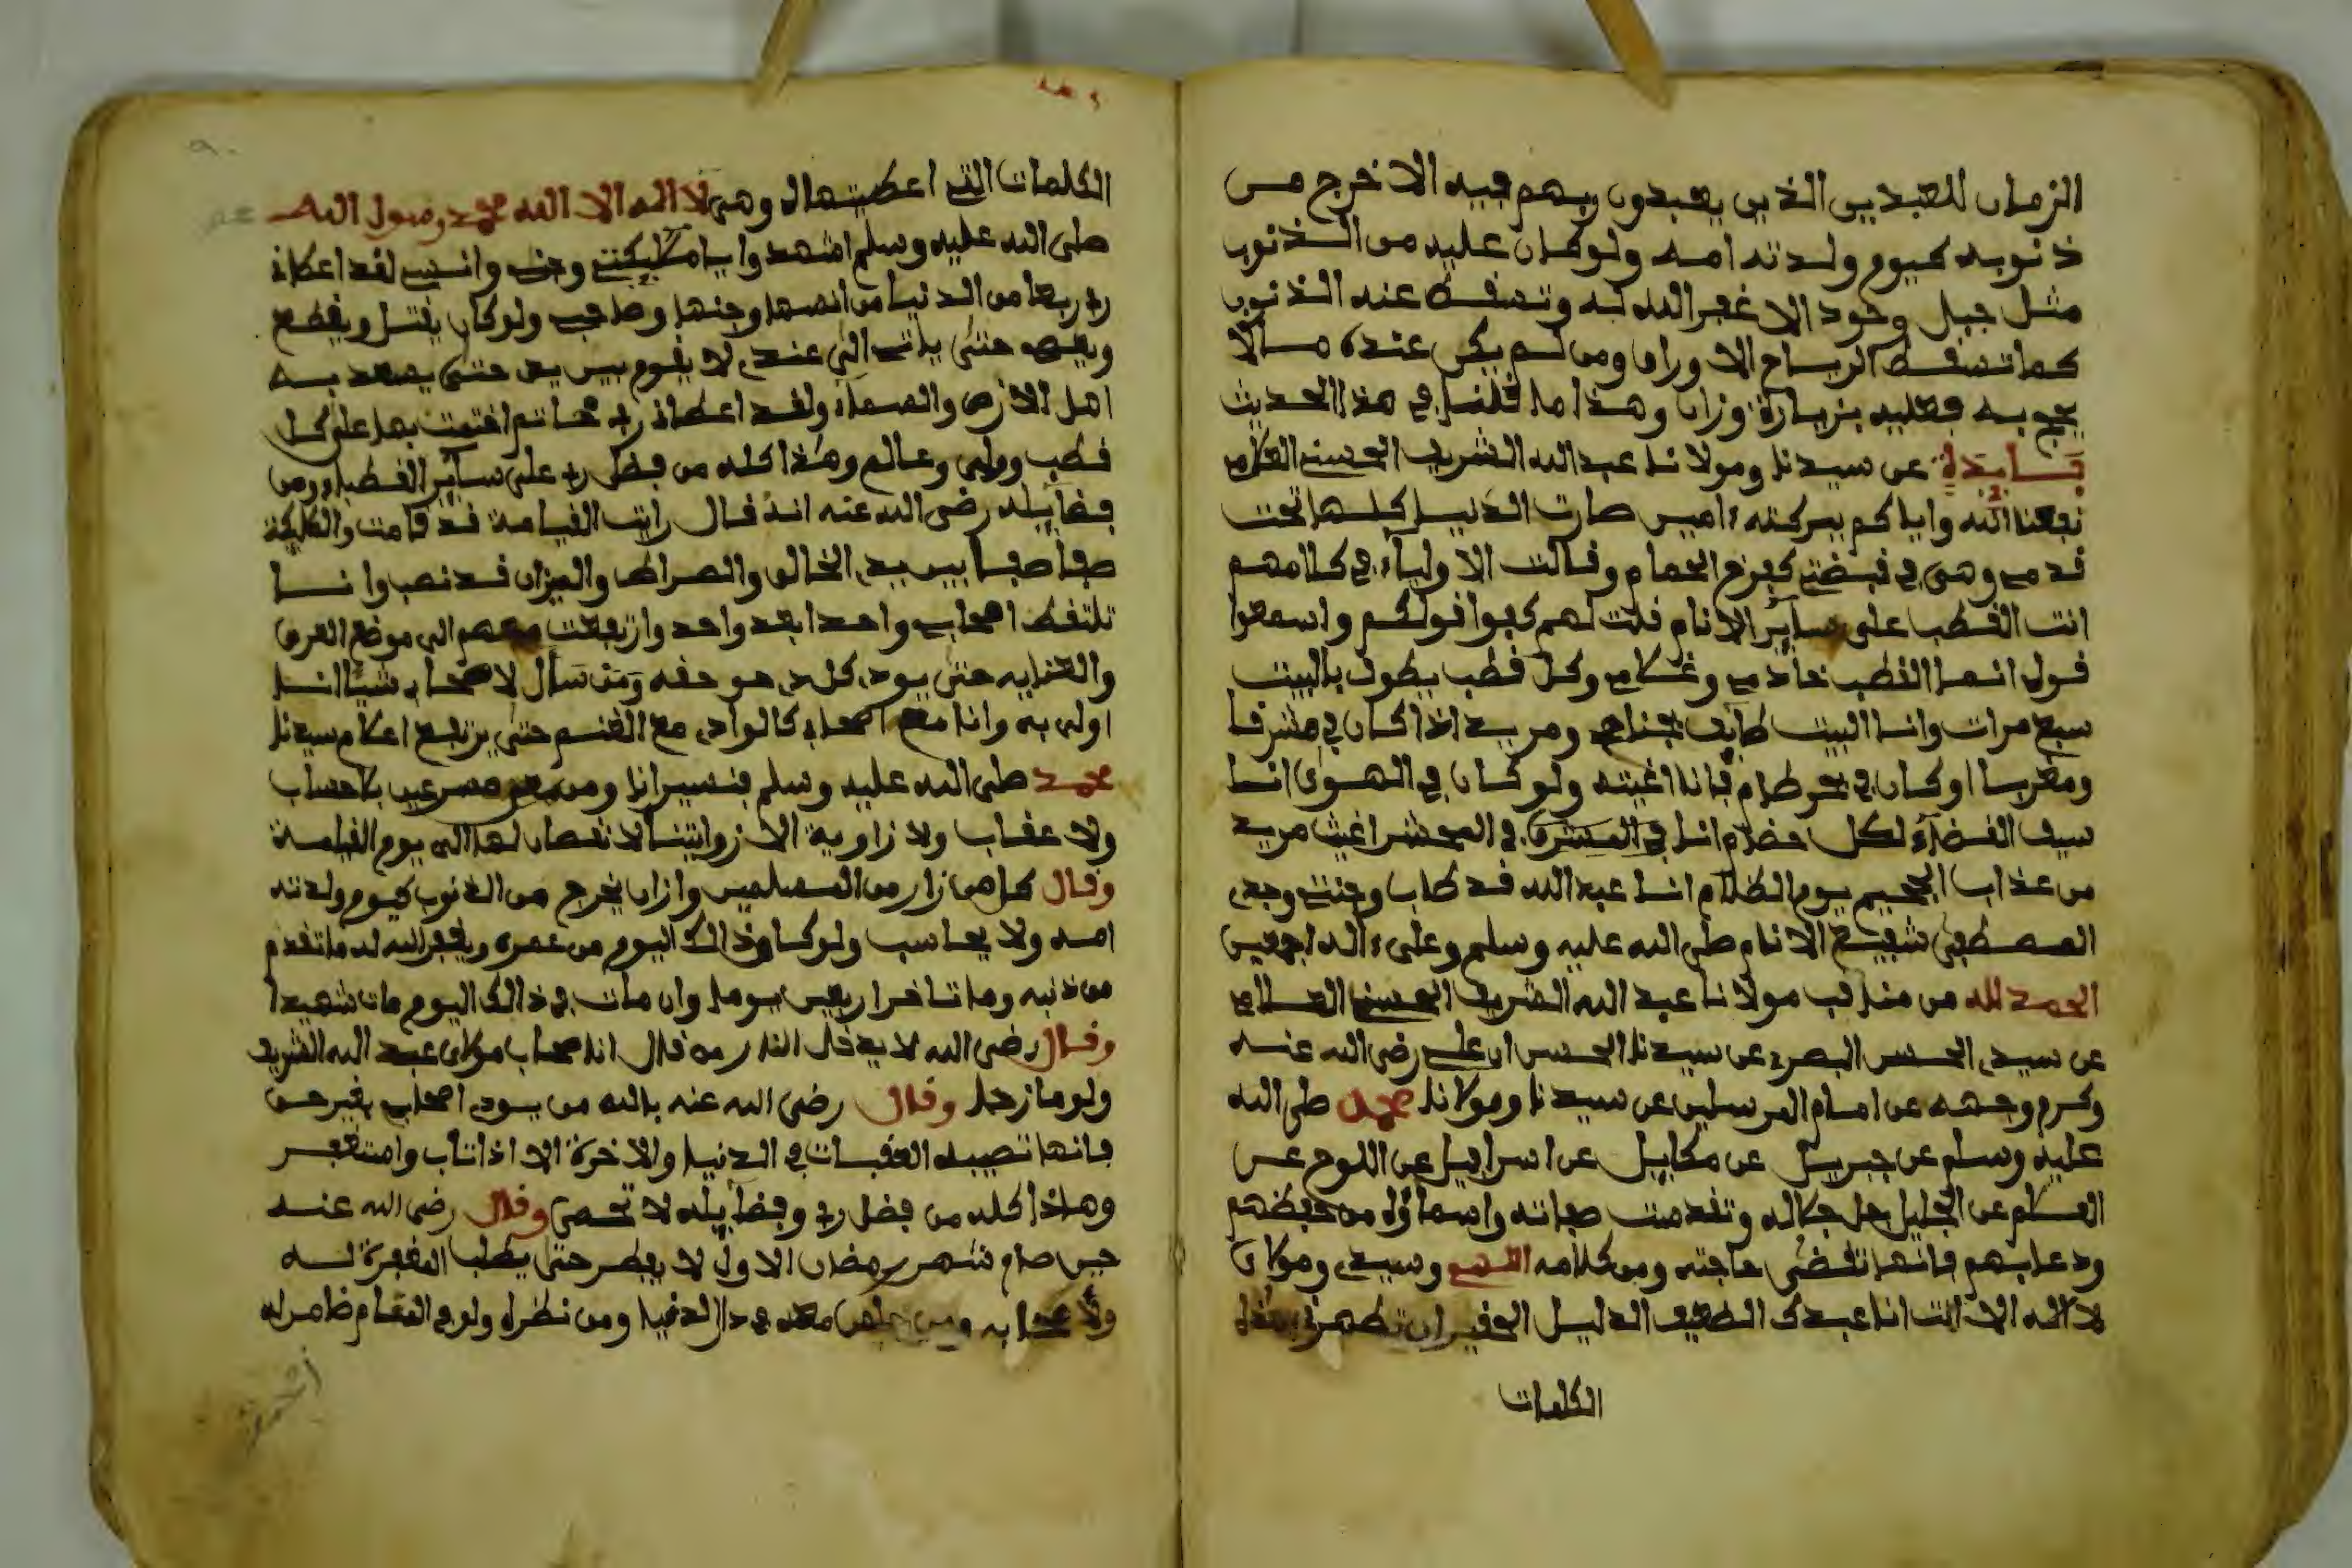 الزمان للعبدين الذين يعبدون ربهم فيه الا خرج من
ذنوبه كيوم ولدته امه ولو كان عليه من الذنوب
مثل جبل وحود الا غفر الله له وتسفط عنه الذنوب
كما تسفط الرياح الاوراق ومن لم يكن عنده مالا
يحج به فعليه بزيارة وزان وهذا ما قلنا في هذا الحديث
فايدة عن سيدنا ومولانا عبد الله الشريف الحسني العلمي
نفعنا الله واياكم ببركته ءامين صارت الدنيا كلها تحت
قدمي وهي في قبضتي كفرخ الحمام وقالت الاولياء في كلامهم
انت القطب على ساير الانام قلت لهم كفوا قولكم واسمعوا
قول انما القطب خادمي وغلامي وكل قطب يطوف بالبيت
سبع مرات وانا البيت طايف بخيامي ومريدي اذا كان في مشرفا
ومغربا او كان في بحر طام فانا اغيثه ولو كان في الهوى انا
سيف القضاء لكل خصام انا في المحشر اغيث مريدي
من عذاب الجحيم يوم الظلام انا عبد الله قد طاب وقتي وجدي
المصطفى شفيع الانام صلى الله عليه وسلم وعلى ءاله اجمعين
الحمد لله من مناقب مولانا عبد الله الشريف الحسني العلامي
عن سيدي الحسن البصري عن سيدنا الحسن ابن علي رضي الله عنه
وكرم وجهه عن امام المرسلين عن سيدنا ومولانا محمد صلى الله
عليه وسلم عن جبريل عن مكاييل عن اسرافيل عن اللوح عن
القلم عن الجليل جل جلاله وتقدست صفاته واسماؤه من حفظهم
ودعا بهم فانها تقضى حاجته ومن كلامه اللهم وسيدي ومولاي
لا اله الا انت انا عبدك الضعيف الذليل الحقير ان تطهرني بهذه
الكلمات
الكلمات التي اعطيتها لي وهي لا اله الا الله محمد رسول الله
صلى الله عليه وسلم اشهدوا يا ملايكتي وجني وانسي لقد اعطاني
ربي ربعا من الدنيا من انسها وجنها وصاحبي ولو كان يقتل ويقطع
ويعصي حتى ياتي الي عندي لا يقوم بين يدي حتى يسعد به
اهل الارض والسماء ولقد اعطاني ربي خاتم اختمت بها على كل
قطب وولي وعالم وهذا كله من فضل ربي على ساير القطباء ومن
فضايله رضي الله عنه انه قال رايت القيامة قد قامت والملايكة
صفا صفا بين يدي الخالق والصراط والميزان قد نصب وانا
نلتقط اصحابي واحدا بعد واحد وارتفعت معهم الى موضع العرض
حتى يودي كل ذي حق حقه ومن سال لاصحابي شيئا انا
اولى به وانا مع اصحابي كالوادي مع الغنم حتى يرتفع اعلام سيدنا
محمد صلى الله عليه وسلم فنسير انا ومن معي مسرعين بلا حساب
ولا عقاب ولا زاوية الا زوايتنا لا نقصان لها الى يوم القيامة
وقال كل من زار من المسلمين وازان يخرج من الذنوب كيوم ولدته
امه ولا يحاسب ولو كان ذالك اليوم من عمره ويغفر الله له ما تقدم
من ذنبه وما تاخر اربعين يوما وان مات في ذالك اليوم مات شهيدا
وقال رضي الله لا يدخل النار من قال انا صحاب مولاي عبد الله الشريف
ولو مازحا وقال رضي الله عنه بالله من يودي اصحابي بغير حق
فانها تصيبه العقبات في الدنيا والاخرة الا اذا تاب واستغفر
وهاذا كله من فضل ربي وفضايله لا تحصى وقال رضي الله عنه
حين صام شهر رمضان الاول لا يفطر حتى يطلب المغفرة له
ولاصحابه ومن معه في دار الدنيا ومن نظراه ولو في المنام ضامن له